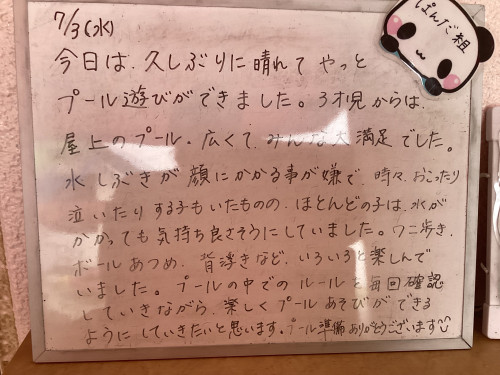 7/3(水)
ぱんだ組
今日は、久しぶりに晴れて やっと
プール遊びができました。3才児からは、
屋上のプール。広くて、みんな大満足でした。
水しぶきが顔にかかる事が嫌で、時々、おこったり
泣いたりする子もいたものの、ほとんどの子は、水が
かかっても気持ち良さそうにしていました。ワニ歩き、
ボールあつめ、背浮きなど、いろいろと楽しんで
いました。プールの中でのルールを毎回確認
していきながら、楽しくプールあそびができる
ようにしていきたいと思います。プール準備ありがとうございます